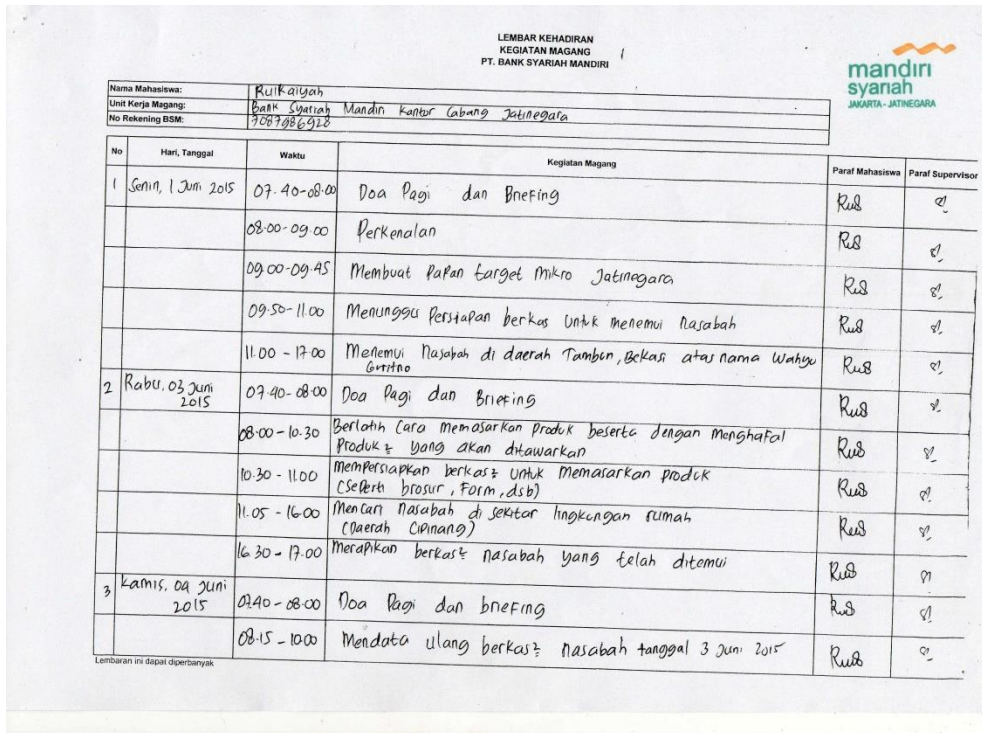 LEMBAR KEHADIRAN
KEGIATAN MAGANG
PT. BANK SYARIAH MANDIRI
mandiri
syariah
JAKARTA - JATINEGARA
Nama Mahasiswa: Rulkaiyah
Unit Kerja Magang: Bank Syariah Mandiri Kantor Cabang Jatinegara
No Rekening BSM: 7087986928
No Hari, Tanggal Waktu Kegiatan Magang Paraf Mahasiswa Paraf Supervisor
1 Senin, 1 Juni 2015 07.40-08.00 Doa Pagi dan Briefing
08.00-09.00 Perkenalan
09.00-09.45 Membuat Papan target Mikro Jatinegara
09.50-11.00 Menunggu Persiapan berkas untuk menemui nasabah
11.00 - 17.00 Menemui Nasabah di daerah Tambun, Bekasi atas nama Wahyu
2 Rabu, 03 Juni 07.40-08.00 Doa Pagi dan Briefing
2015
08.00-10.30 Berlatih Cara memasarkan produk beserta dengan menghafal
Produk2 yang akan ditawarkan
10.30 - 11.00 Mempersiapkan berkas2 untuk memasarkan produk
(seperti brosur, Form, dsb)
11.05 - 16.00 Mencari nasabah di sekitar lingkungan rumah
(Daerah Cipinang)
16.30 - 17.00 Merapikan berkas2 nasabah yang telah ditemui
3 Kamis, 04 Juni
2015 07.40 - 08.00 Doa Pagi dan briefing
08.15 - 10.00 Mendata ulang berkas2 nasabah tanggal 3 Juni 2015
Lembaran ini dapat diperbanyak